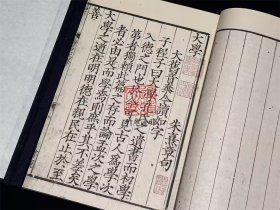 大學
朱熹章句
大舊音泰今讀如字
子程子曰大學孔氏之遺書而初學
入德之門也於今可見古人為學次
第者獨賴此篇之存而論孟次之學
者必由是而學焉則庶乎其不差矣
大學之道在明明德在親民在止於至
善